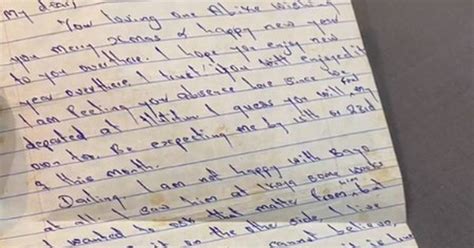 My dear,
You loving one Abike wishing
you merry Xmas & happy new year
to you overthere. I hope you enjoy new
year overthere. I you will enjoyed it
I am feeling you absence love since we
departed at I guess you will find my
own too. Be expecting me by 15th or 22nd
of this month.
Darling. I am not happy with Bayo
at all. I saw him at some weeks
I wanted to ask that matter from him but
it on the other side, I
cannot believe,